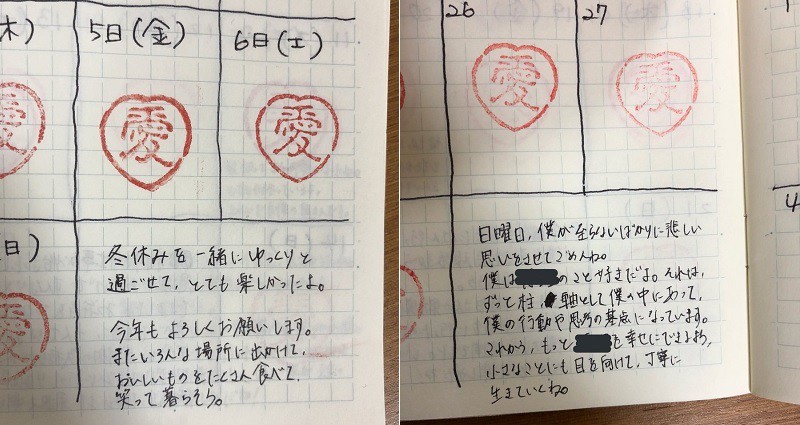 木)
5日(金)
6日(土)
愛
愛
愛
日)
冬休みを一緒にゆっくりと
過ごせて、とても楽しかったよ。
今年もよろしくお願いします。
またいろんな場所に出かけて、
おいしいものをたくさん食べて、
笑って暮らそう。
26
27
愛
愛
日曜日、僕が至らないばかりに悲しい
思いをさせてごめんね。
僕は のことが好きだよ。それは、
ずっと 軸として僕の中にあって、
僕の行動や思考の基点になっています。
これから、もっと を幸せにできるよう、
小さなことにも目を向けて、丁寧に
生きていくね。
4